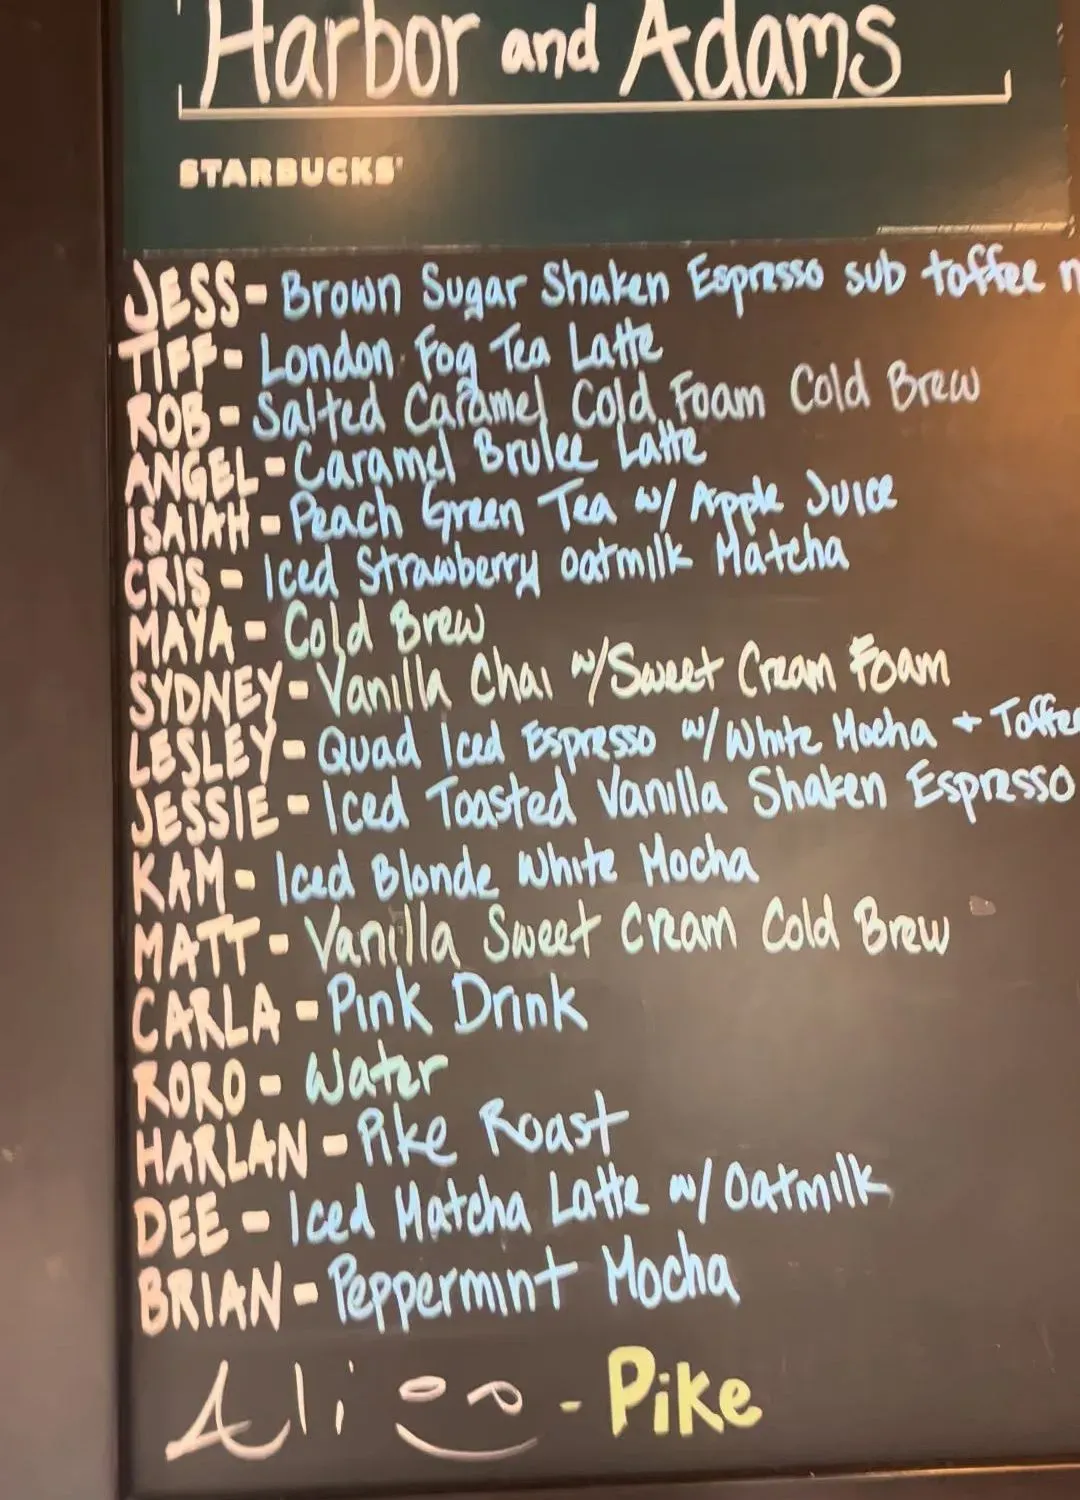 Harbor and Adams
STARBUCKS
JESS - Brown Sugar Shaken Espresso sub toffee n
TIFF - London Fog Tea Latte
ROB - Salted Caramel Cold Foam Cold Brew
ANGEL - Caramel Brulee Latte
ISAIAH - Peach Green Tea w/ Apple Juice
CRIS - Iced Strawberry Oatmilk Matcha
MAYA - Cold Brew
SYDNEY - Vanilla Chai w/ Sweet Cream Foam
LESLEY - Quad Iced Espresso w/ White Mocha + Toffee
JESSIE - Iced Toasted Vanilla Shaken Espresso
KAM - Iced Blonde White Mocha
MATT - Vanilla Sweet Cream Cold Brew
CARLA - Pink Drink
RORO - Water
HARLAN - Pike Roast
DEE - Iced Matcha Latte w/ Oatmilk
BRIAN - Peppermint Mocha
Ali - Pike